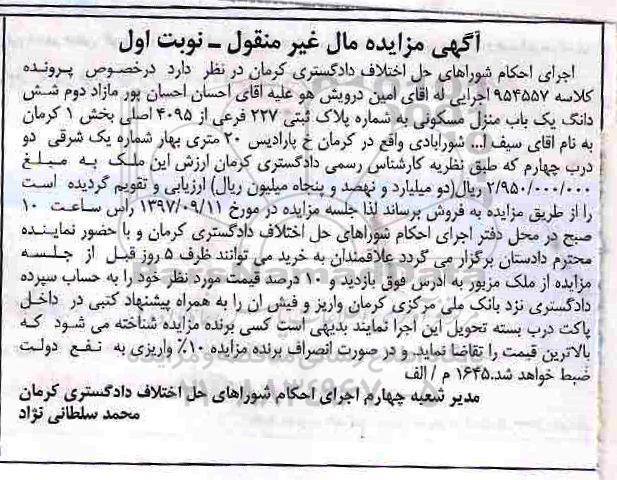 آگهی مزایده مال غیر منقول ـ نوبت اول
اجرای احکام شوراهای حل اختلاف دادگستری کرمان در نظر دارد درخصوص پرونده
کلاسه ۹۵۴۵۵۷ اجرایی له اقای امین درویش هو علیه اقای احسان احسان پور مازاد دوم شش
دانگ یک باب منزل مسکونی به شماره پلاک ثبتی ۲۲۷ فرعی از ۴۰۹۵ اصلی بخش ۱ کرمان
به نام اقای سیف ا... شورابادی واقع در کرمان خ پارادیس ۲۰ متری بهار شماره یک شرقی دو
درب چهارم که طبق نظریه کارشناس رسمی دادگستری کرمان ارزش این ملک به مبلغ
۲/۹۵۰/۰۰۰/۰۰۰ ریال(دو میلیارد و نهصد و پنجاه میلیون ریال) ارزیابی و تقویم گردیده است
را از طریق مزایده به فروش برساند لذا جلسه مزایده در مورخ ۱۳۹۷/۰۹/۱۱ راس ساعت ۱۰
صبح در محل دفتر اجرای احکام شوراهای حل اختلاف دادگستری کرمان و با حضور نماینده
محترم دادستان برگزار می گردد علاقمندان به خرید می توانند ظرف ۵ روز قبل از جلسه
مزایده از ملک مزبور به ادرس فوق بازدید و ۱۰ درصد قیمت مورد نظر خود را به حساب سپرده
دادگستری نزد بانک ملی مرکزی کرمان واریز و فیش ان را به همراه پیشنهاد کتبی در داخل
پاکت درب بسته تحویل این اجرا نمایند بدیهی است کسی برنده مزایده شناخته می شود که
بالاترین قیمت را تقاضا نماید. و در صورت انصراف برنده مزایده ۱۰٪ واریزی به نفع دولت
ضبط خواهد شد.۱۶۴۵ م / الف
مدیر شعبه چهارم اجرای احکام شوراهای حل اختلاف دادگستری کرمان
محمد سلطانی نژاد